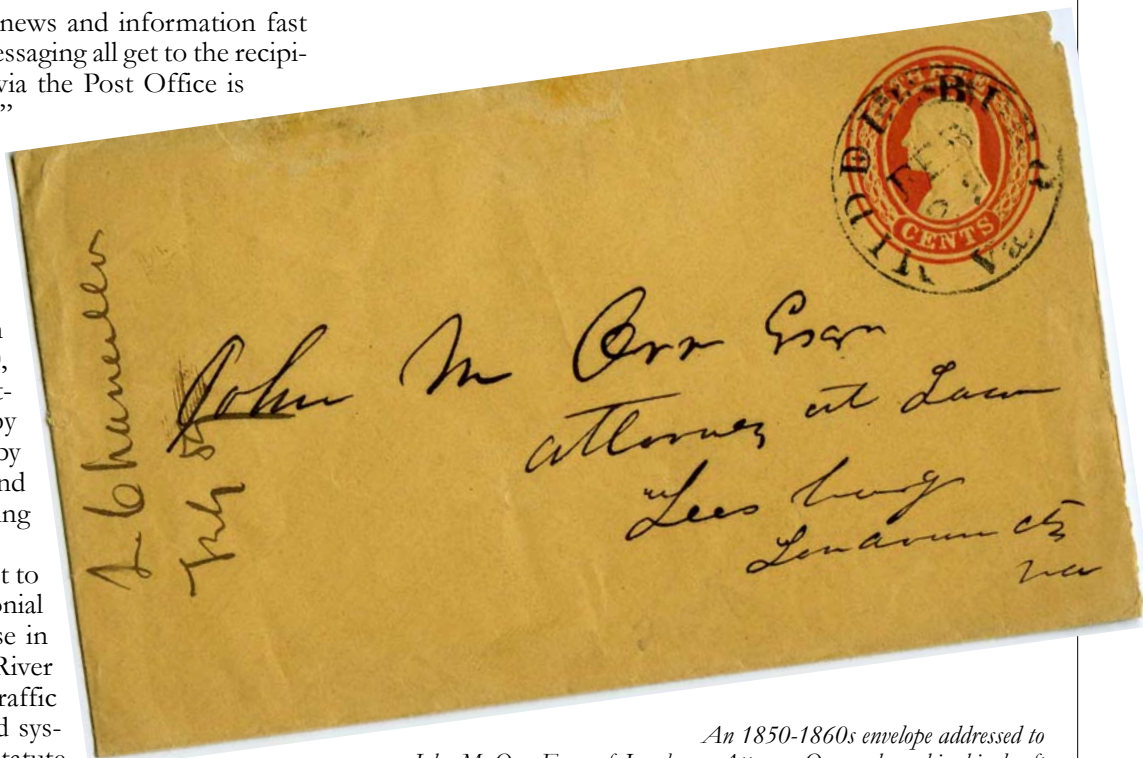 news and information fast
essaging all get to the recipi-
via the Post Office is
”
t-
by
by
nd
ng
t to
onial
se in
River
raffic
d sys-
tatute
THREE
CENTS
MIDDLEBURG
Va.
FEB
John M Orr Esqr
attorney at Law
Leesburg
Loudoun cty
va
An 1850-1860s envelope addressed to